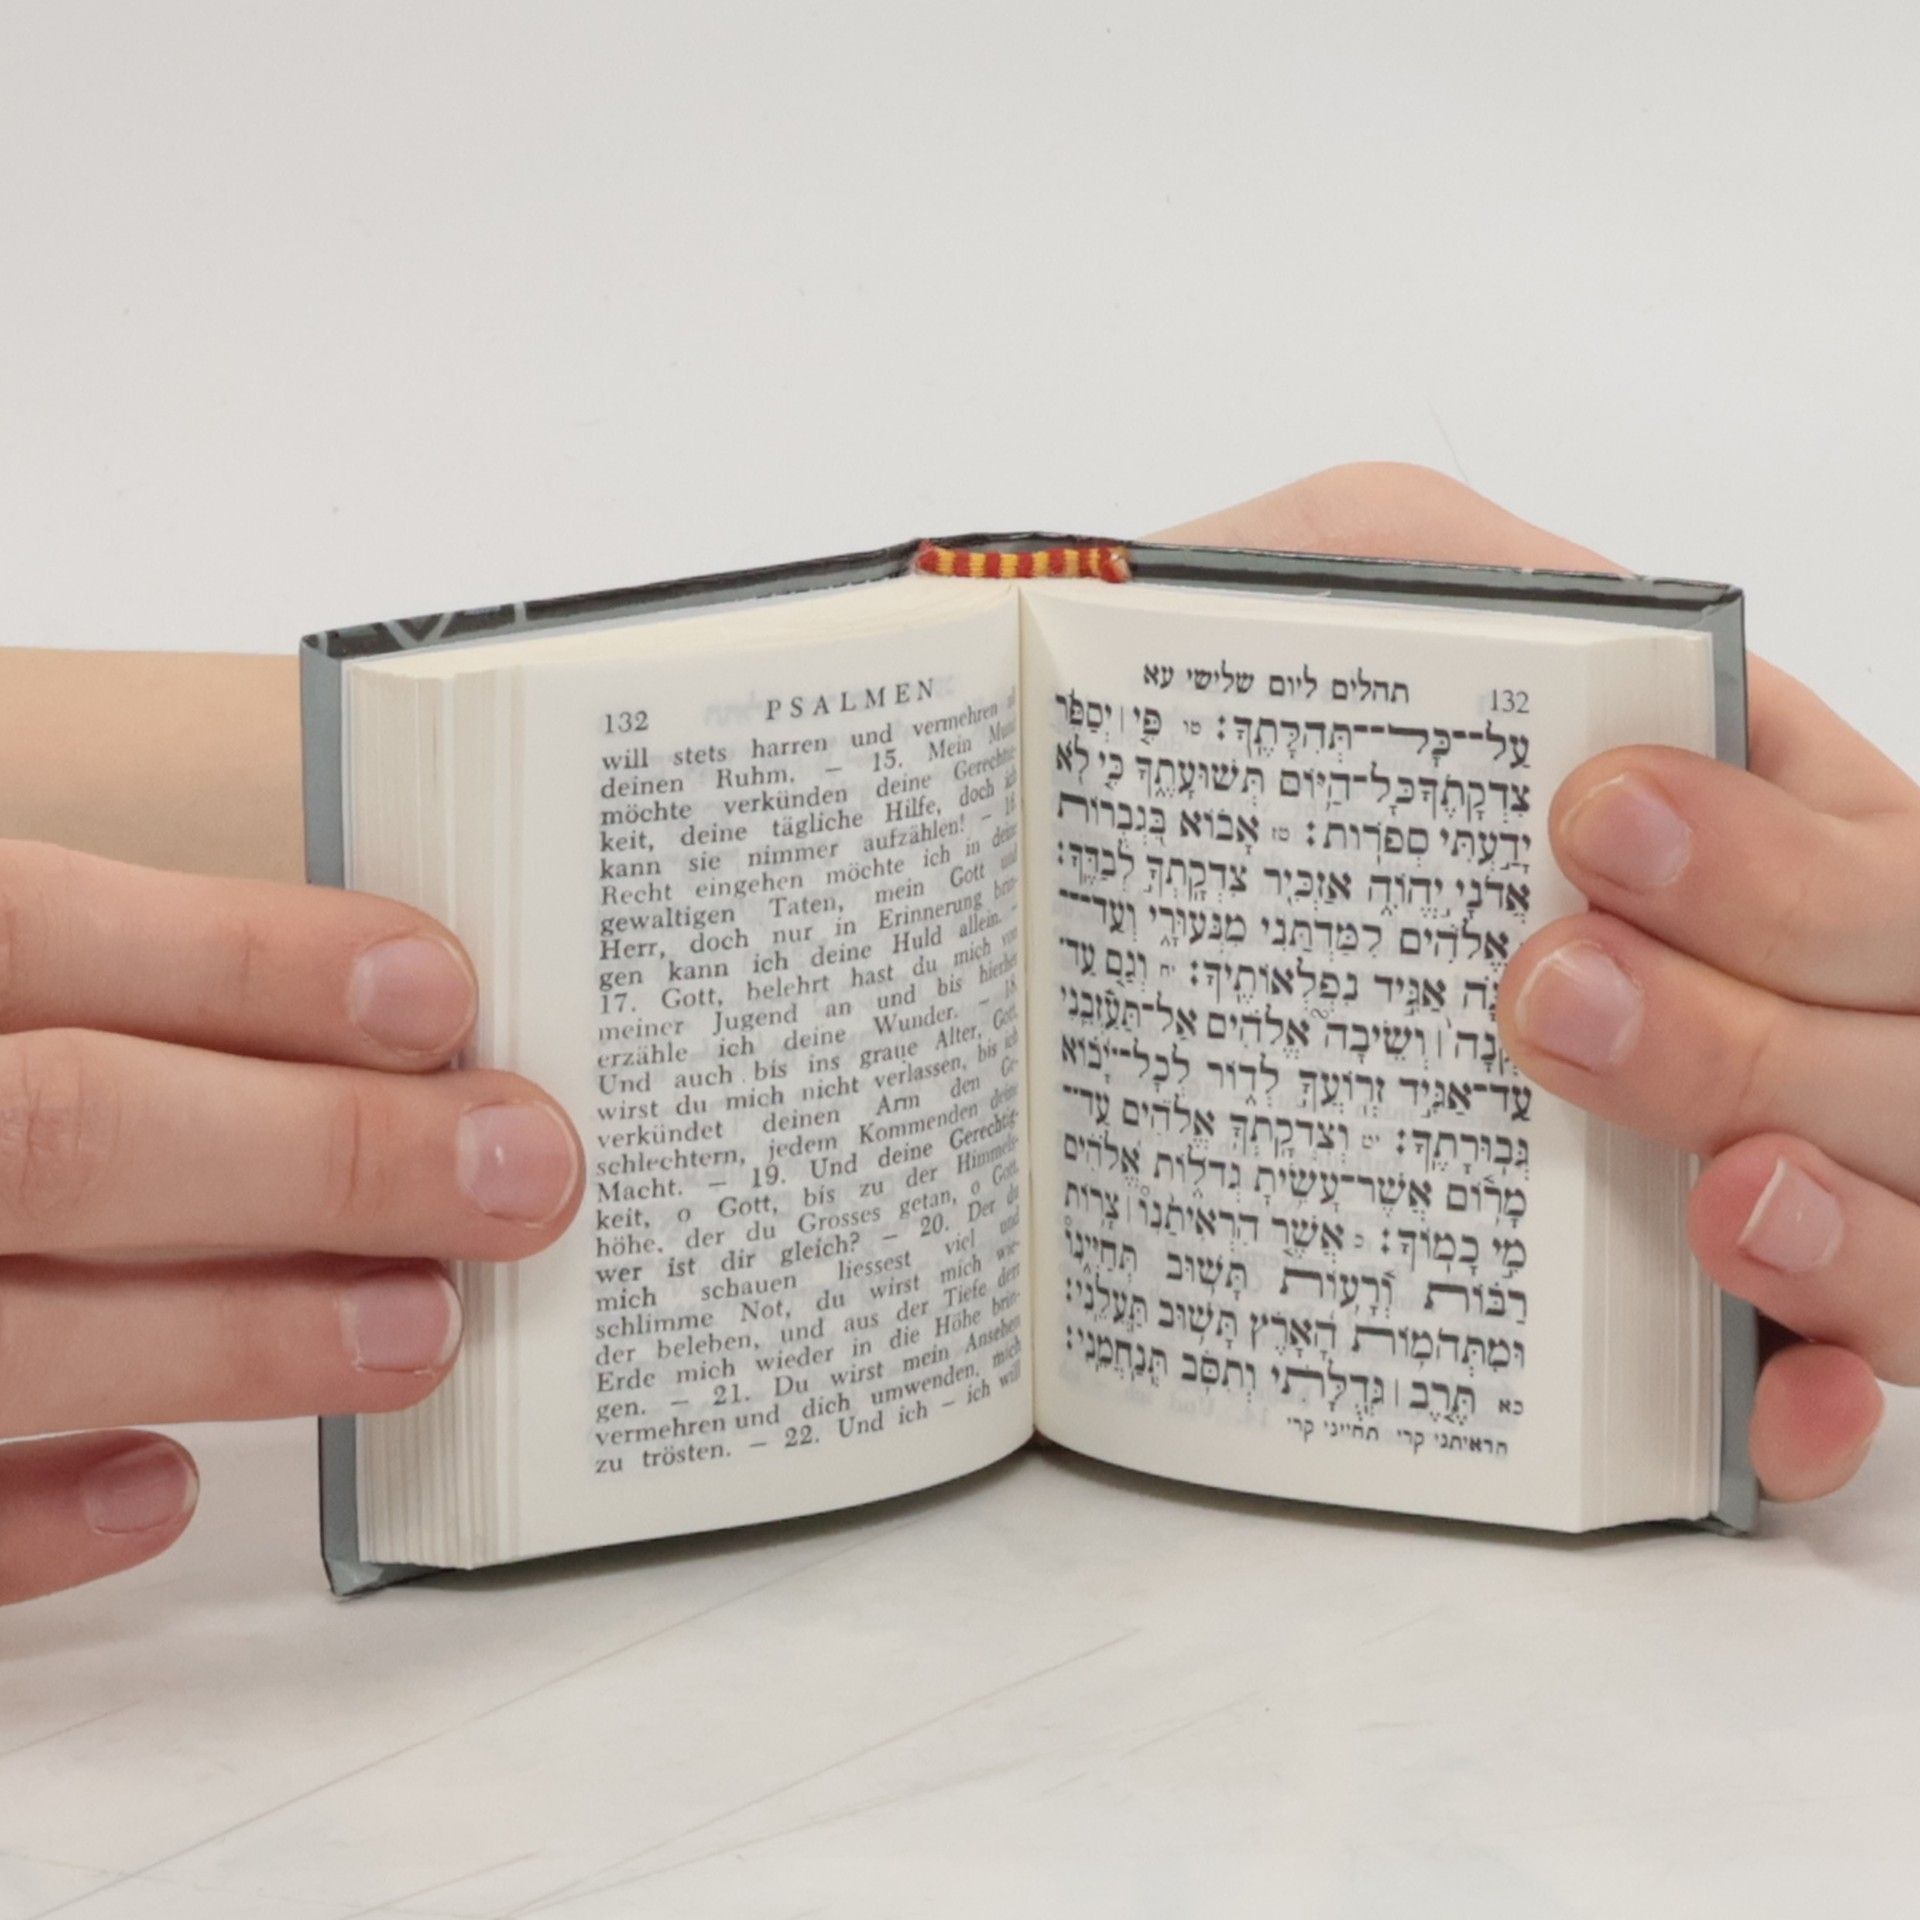 132 PSALMEN
will stets harren und vermehren all
deinen Ruhm. — 15. Mein Mund
möchte verkünden deine Gerechtig-
keit, deine tägliche Hilfe, doch ich
kann sie nimmer aufzählen! — 16.
Recht eingehen möchte ich in deine
gewaltigen Taten, mein Gott und
Herr, doch nur in Erinnerung brin-
gen kann ich deine Huld allein. —
17. Gott, belehrt hast du mich von
meiner Jugend an und bis hierher
erzähle ich deine Wunder. — 18.
Und auch bis ins graue Alter, Gott,
wirst du mich nicht verlassen, bis ich
verkündet deinen Arm den Ge-
schlechtern, jedem Kommenden deine
Macht. — 19. Und deine Gerechtig-
keit, o Gott, bis zu der Himmels-
höhe, der du Grosses getan, o Gott,
wer ist dir gleich? — 20. Der du
mich schauen liessest viel und
schlimme Not, du wirst mich wie-
der beleben, und aus der Tiefe der
Erde mich wieder in die Höhe brin-
gen. — 21. Du wirst mein Ansehen
vermehren und dich umwenden, mich
zu trösten. — 22. Und ich — ich will
תהלים ליום שלישי עא 132
עַל־־כָּל־־תְּהִלָּתֶֽךָ׃ טו פִּ֤י ׀ יְסַפֵּ֬ר
צִדְקָתֶ֗ךָ כָּל־הַיּ֥וֹם תְּשׁוּעָתֶ֑ךָ כִּ֤י לֹ֖א
יָדַ֣עְתִּי סְפֹרֽוֹת׃ טז אָב֗וֹא בִּ֭גְבֻרוֹת
אֲדֹנָ֣י יְהוִ֑ה אַזְכִּ֖יר צִדְקָתְךָ֣ לְבַדֶּֽךָ׃
אֱלֹהִ֗ים לִמַּדְתַּ֥נִי מִנְּעוּרָ֑י וְעַד־־
אַגִּ֥יד נִפְלְאוֹתֶֽיךָ׃ יח וְגַ֤ם עַד־
׀ וְשֵׂיבָה֮ אֱלֹהִ֪ים אַֽל־תַּעַ֫זְבֵ֥נִי
עַד־אַגִּ֣יד זְרוֹעֲךָ֣ לְד֑וֹר לְכָל־יָ֝ב֗וֹא
גְּבוּרָתֶֽךָ׃ יט וְצִדְקָתְךָ֥ אֱלֹהִ֗ים עַד־־
מָ֫ר֥וֹם אֲשֶׁר־עָשִׂ֥יתָ גְדֹל֑וֹת אֱ֝לֹהִ֗ים
מִ֣י כָמֽוֹךָ׃ כ אֲשֶׁ֤ר הִרְאִיתַ֨נוּ ׀ צָר֥וֹת
רַבּ֗וֹת וְרָ֫ע֥וֹת תָּשׁ֥וּב תְּחַיֵּ֑ינוּ
וּֽמִתְּהֹמ֥וֹת הָ֝אָ֗רֶץ תָּשׁ֥וּב תַּעֲלֵֽנִי׃
כא תֶּ֤רֶב ׀ גְּֽדֻלָּתִ֗י וְתִסֹּ֥ב תְּֽנַחֲמֵֽנִי׃
הראיתני קרי תחייני קרי